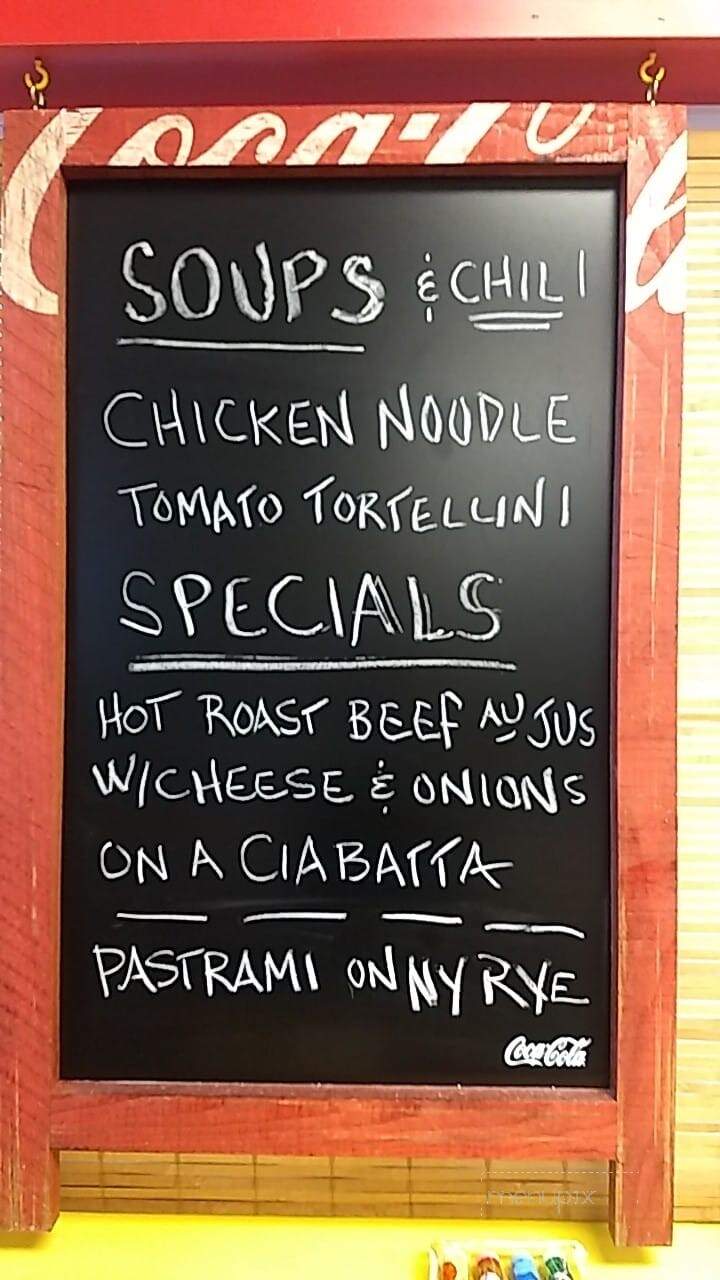 Coca-Cola
SOUPS & CHILI
CHICKEN NOODLE
TOMATO TORTELLINI
SPECIALS
HOT ROAST BEEF AU JUS
W/CHEESE & ONIONS
ON A CIABATTA
PASTRAMI ON NY RYE
Coca-Cola
menupix